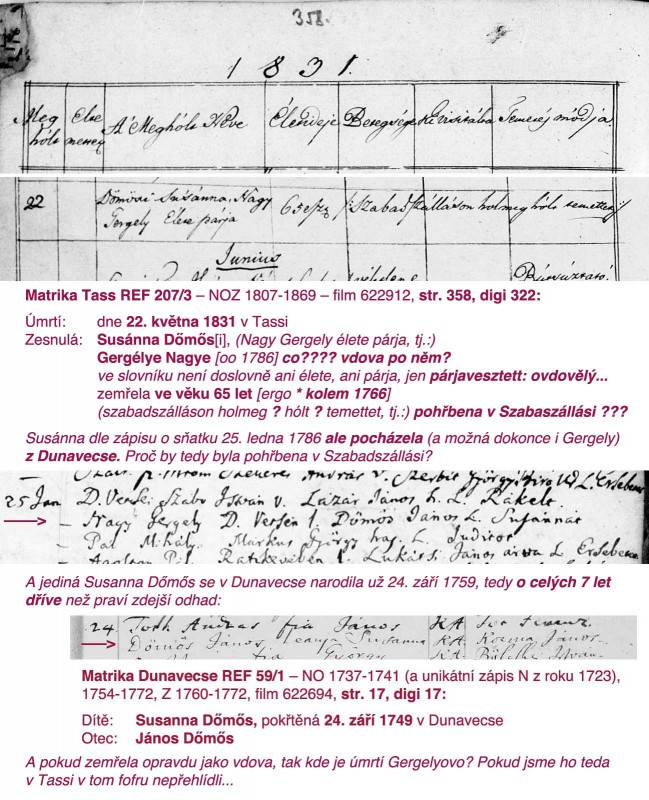 358.
1831.
Meg hólt
Else
A' Meghólt Neve
Élet ideje
Betegsége
Temetés módja.
22
Dömösi Susánna, Nagy
Gergely Élete párja
65 esz
Szabadszálláson hol meg hólt temettetett
Junius
Matrika Tass REF 207/3 – NOZ 1807-1869 – film 622912, str. 358, digi 322:
Úmrtí: dne 22. května 1831 v Tassi
Zesnulá: Susánna Dőmős[i], (Nagy Gergely élete párja, tj.:)
Gergélye Nagye [oo 1786] co???? vdova po něm?
ve slovníku není doslovně ani élete, ani párja, jen párjavesztett: ovdovělý...
zemřela ve věku 65 let [ergo * kolem 1766]
(szabadszálláson holmeg ? hólt ? temettet, tj.:) pohřbena v Szabaszállási ???
Susánna dle zápisu o sňatku 25. ledna 1786 ale pocházela (a možná dokonce i Gergely)
z Dunavecse. Proč by tedy byla pohřbena v Szabadszállási?
25 Jan D. Versei Szabo Istvan v. Lázár János h. L. Rákelt.
– Nagy Gergely D. Versén l. Dömös János L. Susannát
– Pal Mihály. Markus György haj. L. Juditot
A jediná Susanna Dőmős se v Dunavecse narodila už 24. září 1759, tedy o celých 7 let
dříve než praví zdejší odhad:
24. Toth Andras fia János
Dömös János Leanya Susanna K.A. Kozma János
fia György
Matrika Dunavecse REF 59/1 – NO 1737-1741 (a unikátní zápis N z roku 1723),
1754-1772, Z 1760-1772, film 622694, str. 17, digi 17:
Dítě: Susanna Dőmős, pokřtěná 24. září 1749 v Dunavecse
Otec: János Dőmős
A pokud zemřela opravdu jako vdova, tak kde je úmrtí Gergelyovo? Pokud jsme ho teda
v Tassi v tom fofru nepřehlídli...